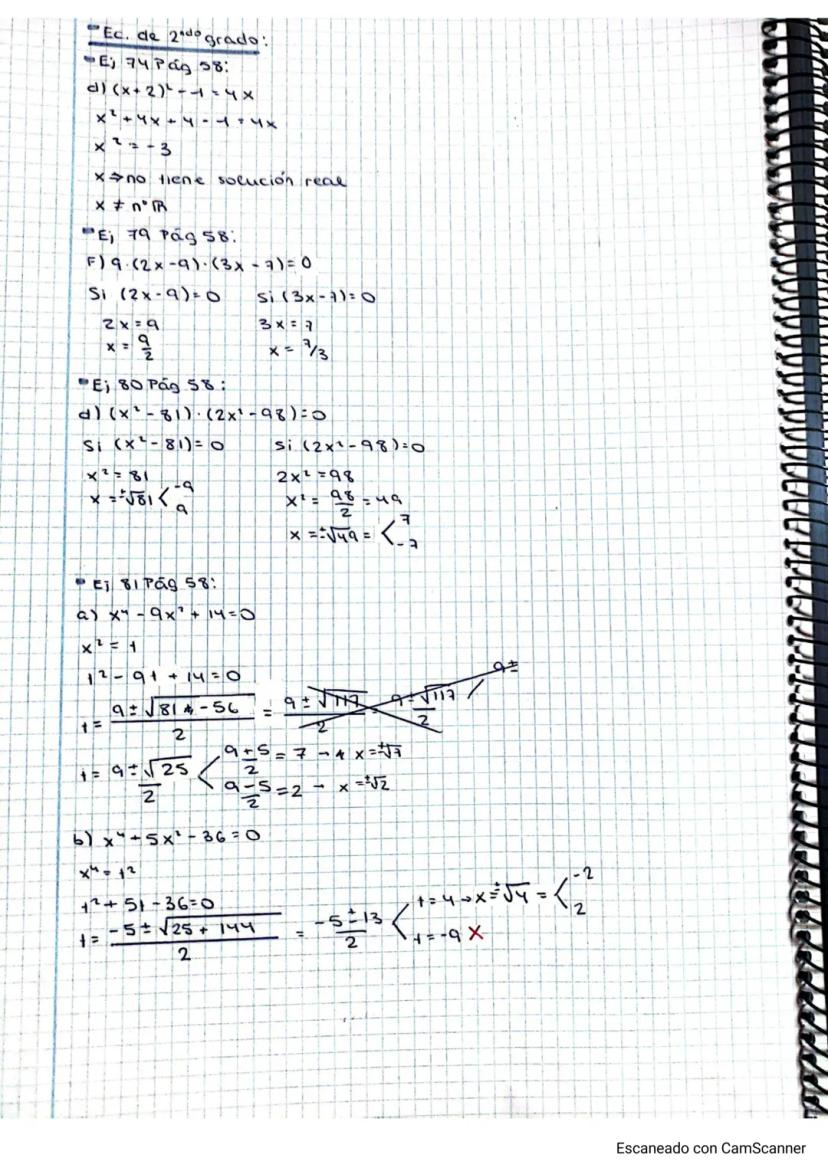 Ec. de 2ndo grado:
Ej 74 Pág 58:
d) (x+2)² - 1 = 4x
x² + 4x + 4 - 1 = 4x
x² = -3
x → no tiene solución real
x ≠ nº ℝ
Ej 79 Pág 58:
F) 9·(2x-9)·(3x-7)=0
Si (2x-9)=0 Si (3x-7)=0
2x=9 3x=7
x = 9/2 x = 7/3
Ej 80 Pág 58:
d) (x²-81)·(2x²-98)=0
Si (x²-81)=0 Si (2x²-98)=0
x² = 81 2x² = 98
x = ±√81 < -9 9 x² = 98/2 = 49
x = ±√49 = < 7 -7
Ej 81 Pág 58:
a) x⁴ - 9x² + 14 = 0
x² = t
t² - 9t + 14 = 0
t = 9 ± √81-56 / 2 = 9 ± √117 / 2 = 9 ± √117 / 2 9±
t = 9 ± √25 / 2 < 9+5/2 = 7 → x = ±√7
9-5/2 = 2 → x = ±√2
b) x⁴ + 5x² - 36 = 0
x⁴ = t²
t² + 5t - 36 = 0
t = -5 ± √25 + 144 / 2 = -5 ± 13 / 2 < t = 4 → x = ±√4 = < -2 2
t = -9 X
Escaneado con CamScanner